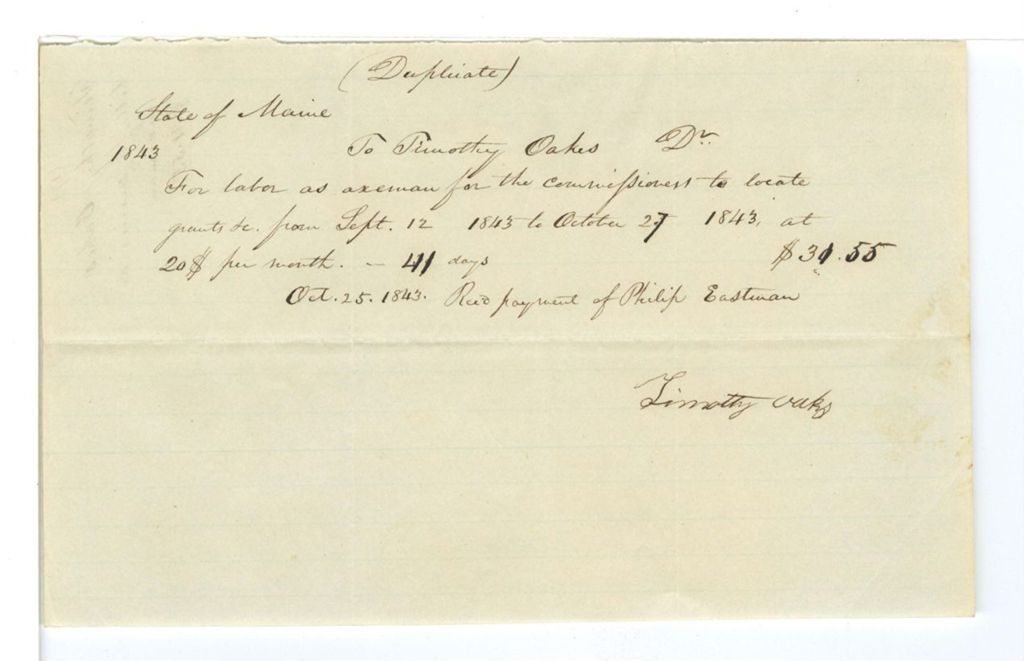 (Duplicate)
State of Maine
1843 To Timothy Oakes Dr.
For labor as axeman for the commissioners to locate
grants &c. from Sept. 12 1843 to October 27 1843, at
20$ per month. – 41 days $31.55
Oct. 25. 1843. Recd payment of Philip Eastman
Timothy Oaks